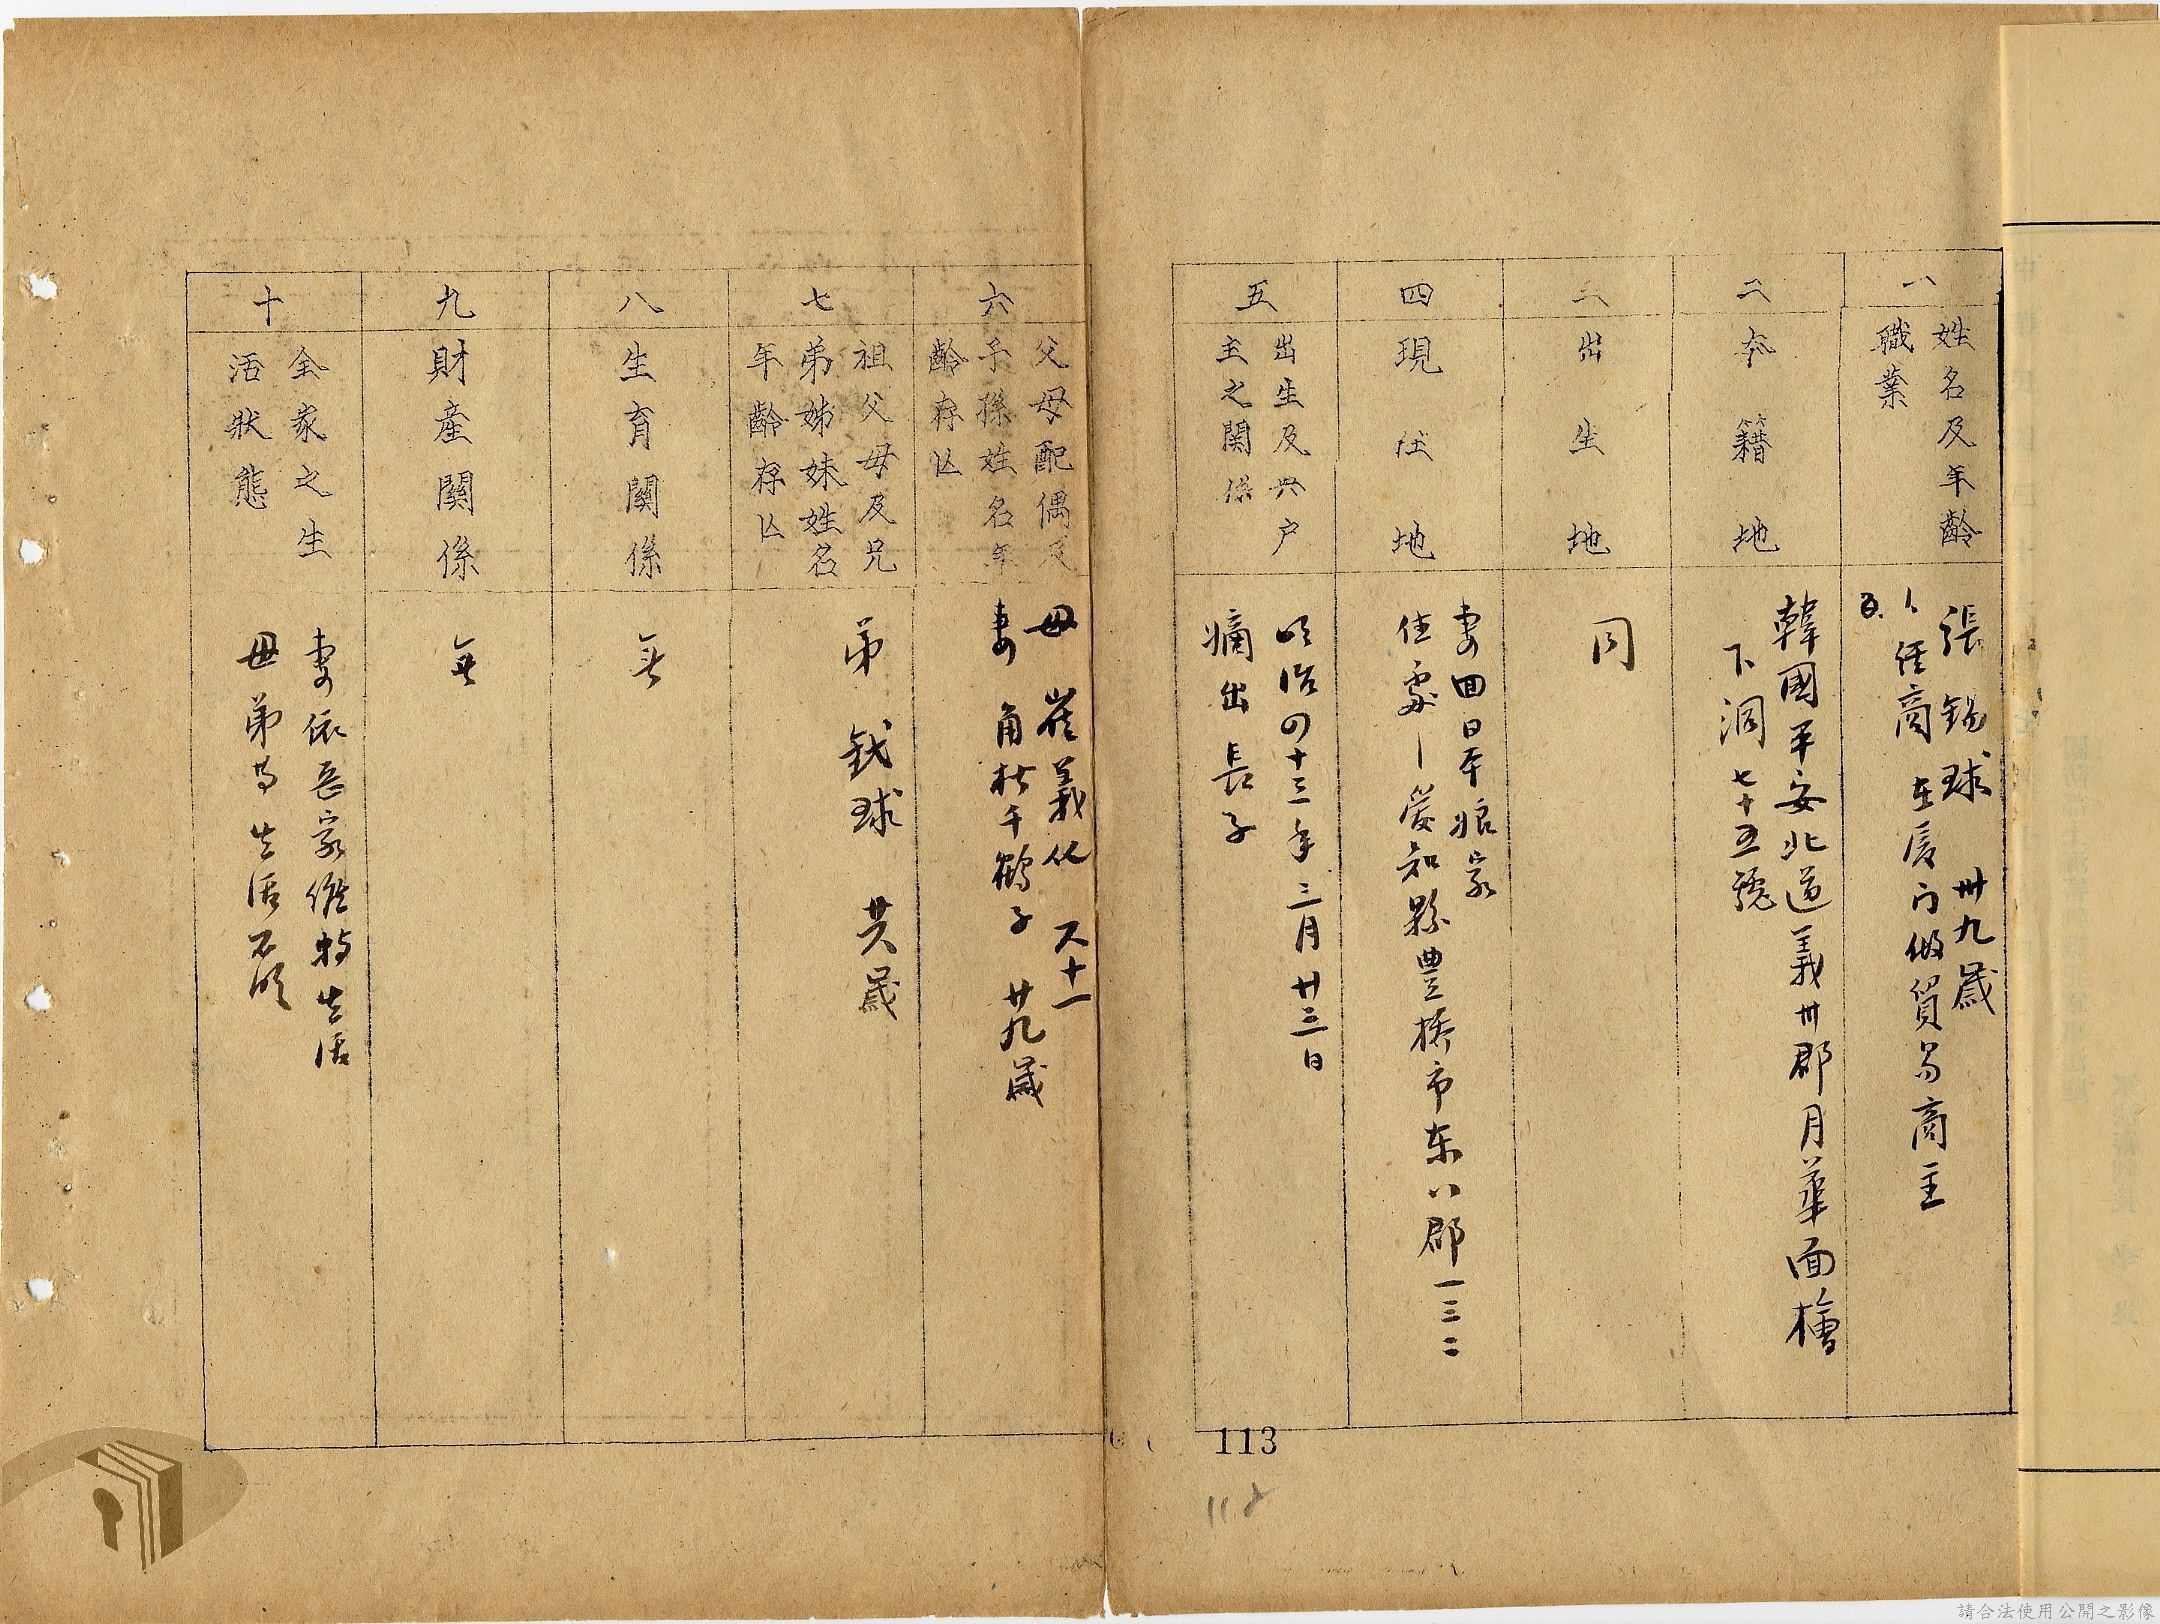 一
姓名及年齡
職業
張錫球 卅九歲
任商 在厦门做貿易商主
二
本籍地
韓國平安北道義州郡月華面檜
下洞七十五號
三
出生地
同
四
現住地
妻回日本娘家
住處—愛知縣豊橋市东八郡一三二
五
出生及與户
主之関係
明治四十三年三月廿三日
嫡出長子
六
父母配偶及
子孫姓名年
齡存亡
母 崔義化 六十一
妻 角材千鶴子 廿九歲
七
祖父母及兄
弟姊妹姓名
年齡存亡
弟 鉽球 廿六歲
八
生育関係
無
九
財產関係
無
十
全家之生
活狀態
妻依岳家維持生活
母弟等生活不明
113
112
請合法使用公開之影像